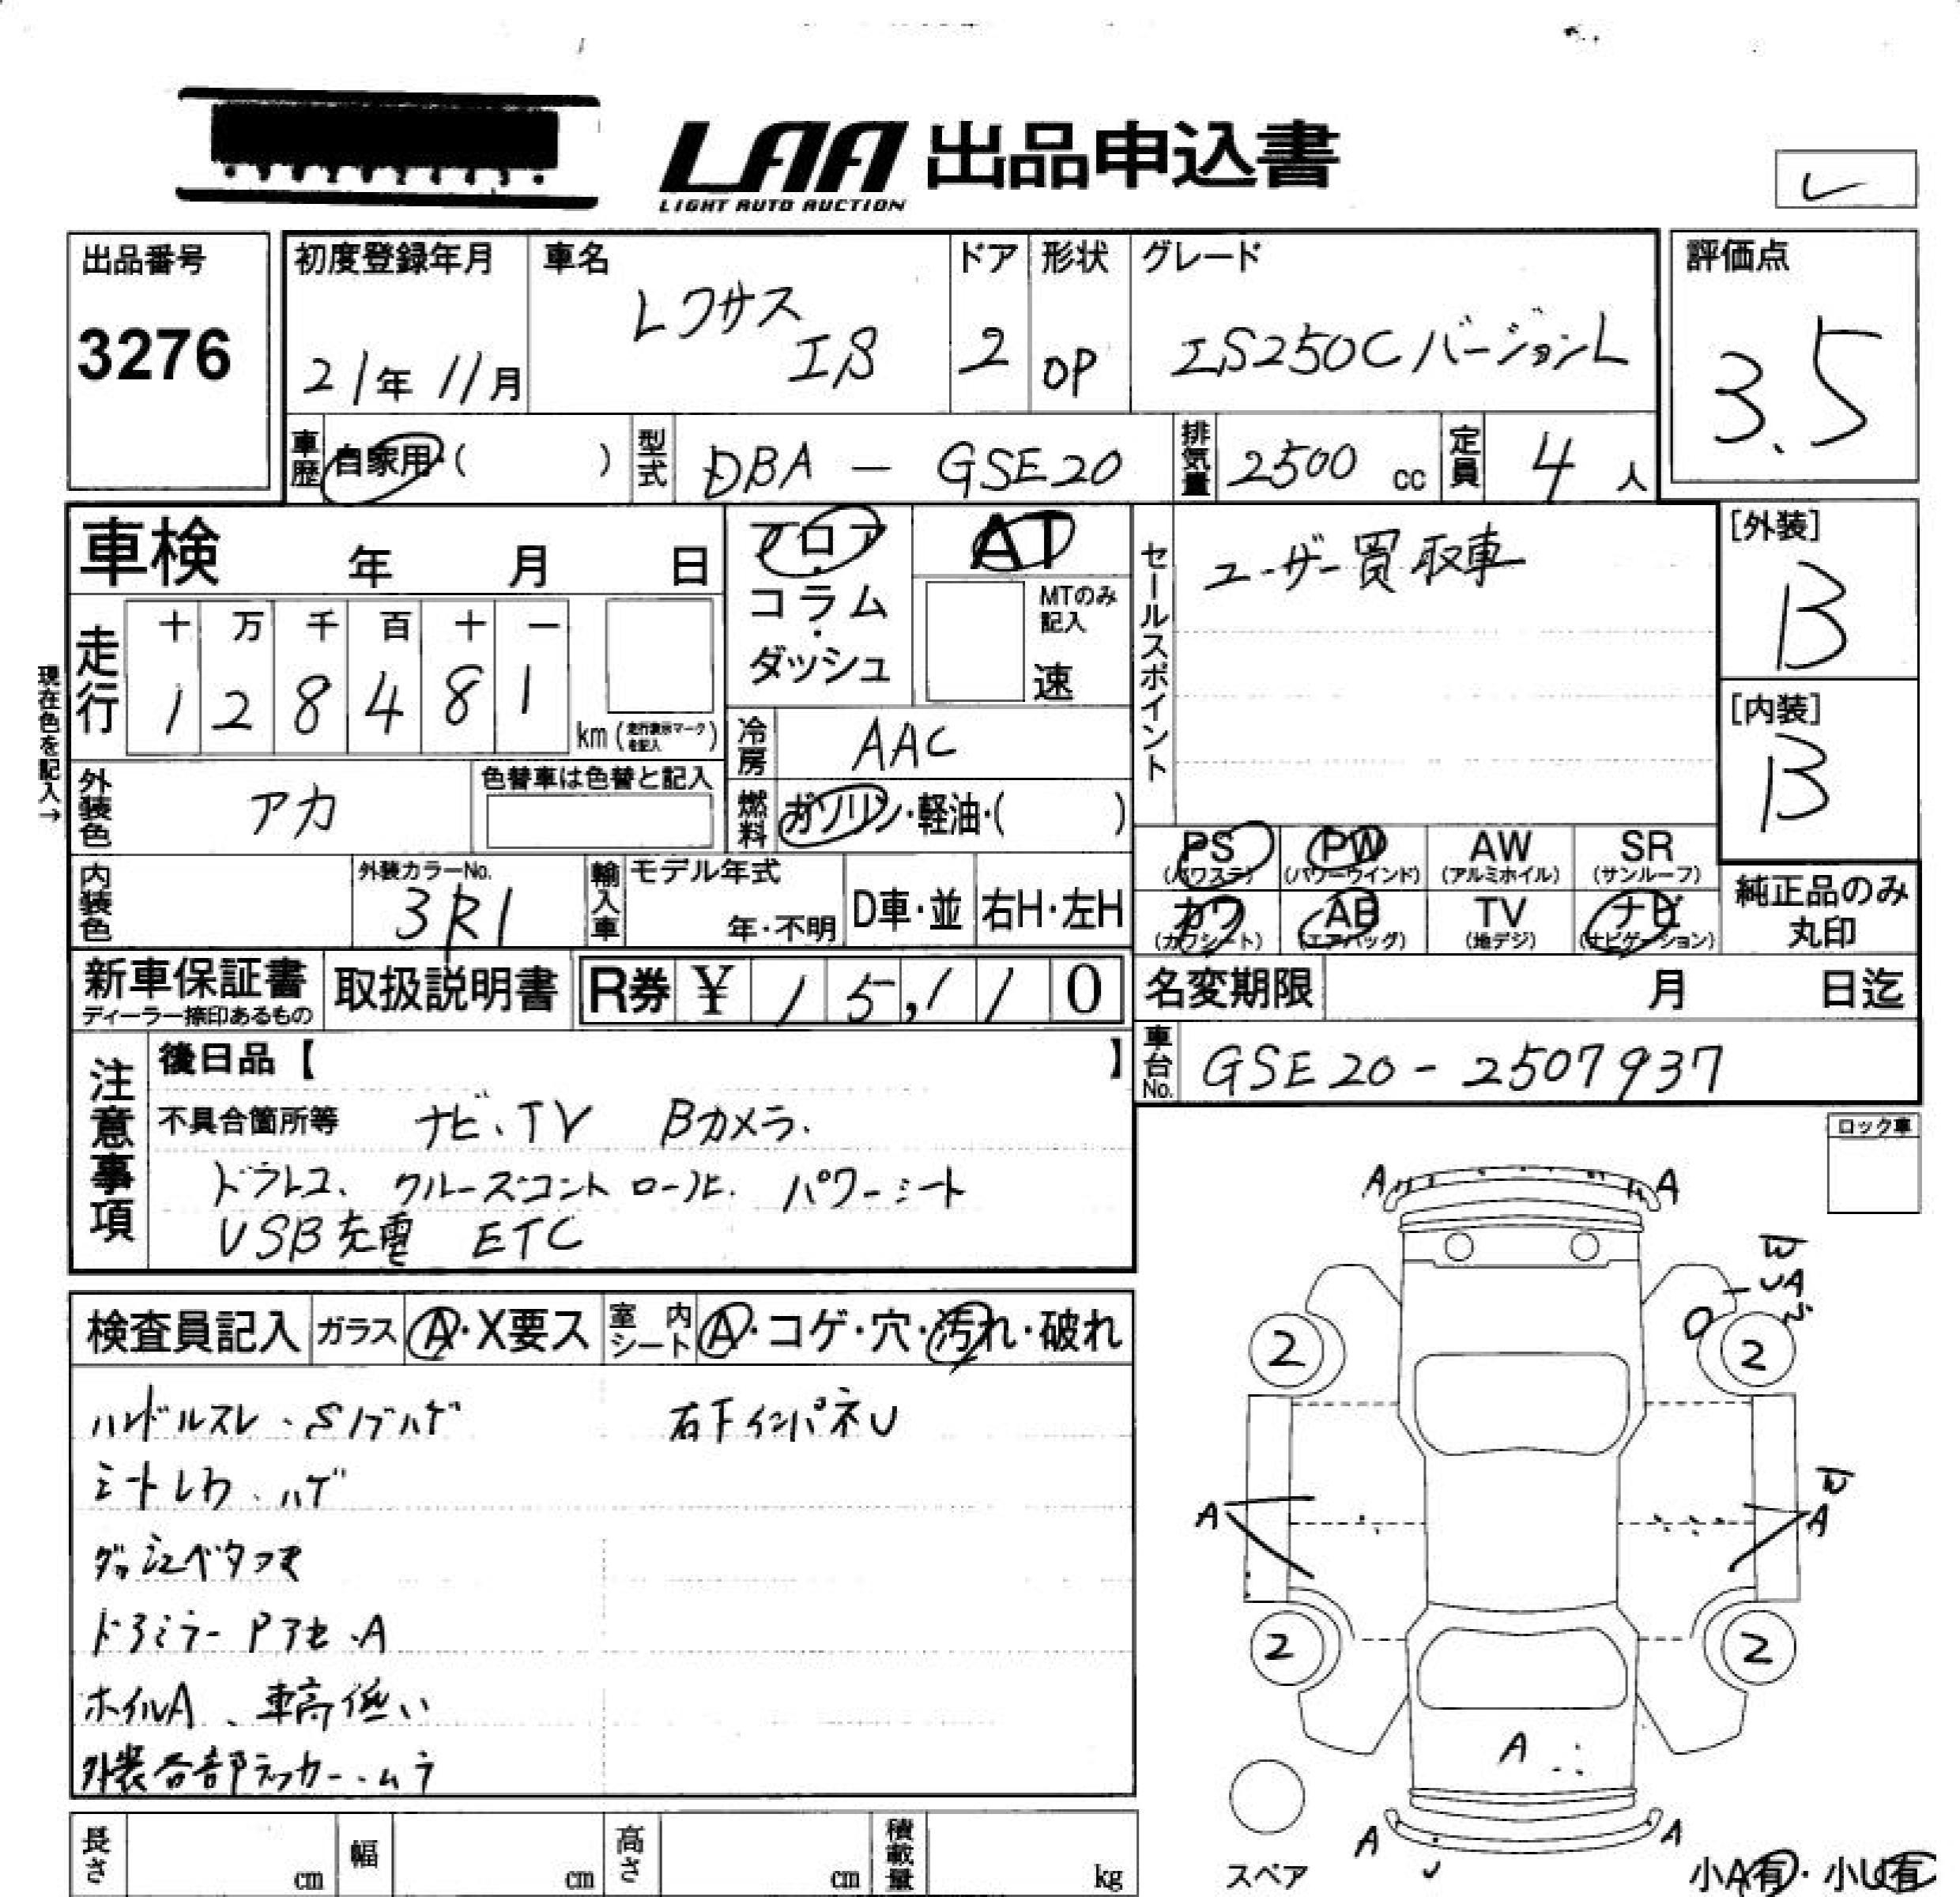 LAA 出品申込書
LIGHT AUTO AUCTION
レ
出品番号
3276
初度登録年月
21年 11月
車名
レクサス
IS
ドア
2
形状
OP
グレード
IS250C バージョンL
評価点
3.5
車歴 自家用・( )
型式 DBA - GSE20
排気量 2500 cc
定員 4 人
車検 年 月 日
フロア・コラム・ダッシュ
AT
MTのみ記入
速
セールスポイント
ユーザー買取車
[外装]
B
[内装]
B
現在色を記入→
走行
十 万 千 百 十 一
1 2 8 4 8 1
km(走行表示マークを記入)
冷房 AAC
燃料 ガソリン・軽油・( )
外装色 アカ
色替車は色替と記入
内装色
外装カラーNo.
3R1
輸入車
モデル年式
年・不明
D車・並
右H・左H
PS (パワステ)
PW (パワーウインド)
AW (アルミホイル)
SR (サンルーフ)
カワ (カワシート)
AB (エアバッグ)
TV (地デジ)
ナビ (ナビゲーション)
純正品のみ
丸印
新車保証書
ディーラー捺印あるもの
取扱説明書
R券 ¥ 15,110
名変期限 月 日迄
車台No. GSE20-2507937
注意事項
後日品【 】
不具合箇所等 ナビ、TV Bカメラ.
ドラレコ、クルーズコントロール. パワーシート
USB充電 ETC
ロック車
検査員記入
ガラス A・X要ス
室内シート A・コゲ・穴・汚れ・破れ
ハンドルスレ・Sノブハゲ 右下インパネU
シートレカ、ハゲ
ダッシュベタつき
ドアミラー Pアセ、A
ホイルA、車高低い
外装各部ラッカー、ムラ
A A
W
UA
S
2 2
W
A A
2 2
A
A U A
スペア
小A有・小U有
長さ cm
幅 cm
高さ cm
積載量 kg